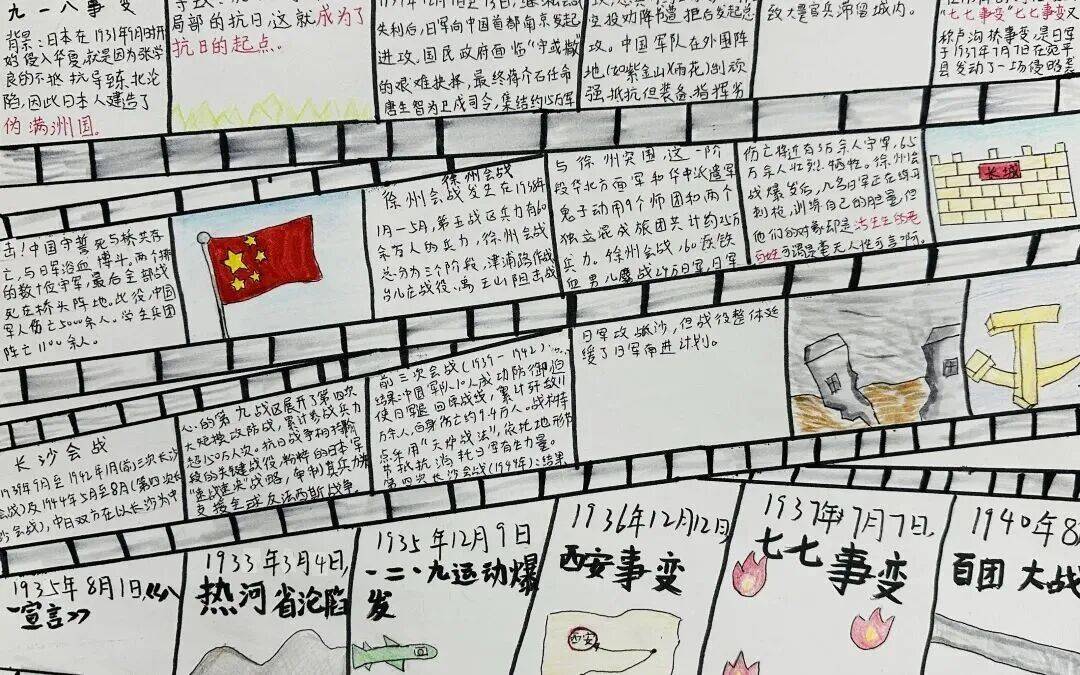 九一八事变
背景:日本在1931年9月18开
始侵入华夏,就是因为张学
良的不抵抗导致东北沦
陷,因此日本人建造了
伪满洲国。
局部的抗日,这就成为了
抗日的起点。
失利后,日军向中国首都南京发起
进攻,国民政府面临“守或撤”
的艰难抉择,最终蒋介石任命
唐生智为卫戍司令,集结约15万军
攻。中国军队在外围阵
地(如紫金山、雨花)剧顽
强抵抗但装备、指挥劣
致大量官兵滞留城内。
“七七事变”七七事变又
称卢沟桥事变,是日军
于1937年7月7日在宛平
县发动了一场侵略
击!中国守誓死与桥共存
亡,与日军浴血博斗。两个排
的数十位守军,最后全部战
死在桥头阵地。此役,中国
军人伤亡5000余人。学生兵团
阵亡1100余人。
徐州会战
徐州会战发生在1938年
1月-5月,第五战区兵力有60
余万人的兵力,徐州会战
总分为三个阶段,津浦路作战
台儿庄战役,禹王山阻击战
与徐州突围,这一阶
段华北方面军和华中派遣军
鬼子动用9个师团和两个
独立混成旅团共计约25万
兵力。徐州会战,60万铁
血男儿鏖战24万日军,日军
伤亡将近有3万余人守军,6.5
万余人壮烈牺牲。徐州会
战爆发后,几名日军正在练习
刺枪,训练自己的胆量,但
他们的对象却是活生生的老
百姓可谓是毫无人性可言啊。
长城
长沙会战
1939年9月至1942年1月(前三次长沙
会战)及1944年5月至8月(第四次长
沙会战),中日双方在以长沙为中
心的第九战区展开了第四次
大规模攻防战,累计参战兵力
超150万人次。抗日战争相持阶
段的关键战役,粉碎的日本军
“速战速决”战略,牵制其兵力
支援全球反法西斯战争
前三次会战(1939-1942):
结果:中国军队10人成功防御迫
使日军退回原战线,累计歼敌11
万余人,自身伤亡约9.4万人。战术特
点采用“天炉战法”,依托地形节
节抵抗消耗日军有生力量。
第四次长沙会战(1944年):结果
日军攻破长沙,但战役整体延
缓了日军南进计划。
1935年8月1日,《八
一宣言》
1933年3月4日,
热河省沦陷
1935年12月9日
一二·九运动爆
发
1936年12月12日,
西安事变
西安
1937年7月7日,
七七事变
1940年8
百团大战